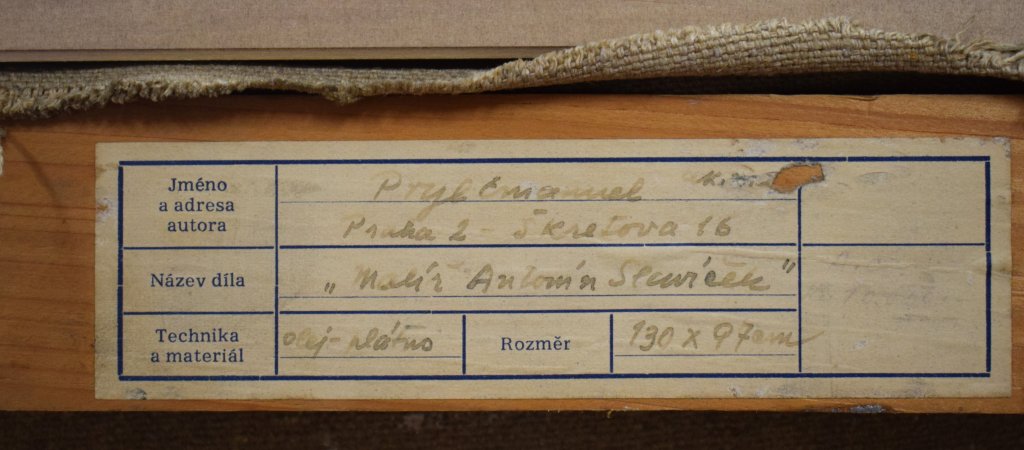 Jméno
a adresa
autora
Pryl Emanuel
Praha 2 - Škretova 16
Název díla
„Malíř Antonín Slavíček"
Technika
a materiál
olej-plátno
Rozměr
130 x 97cm